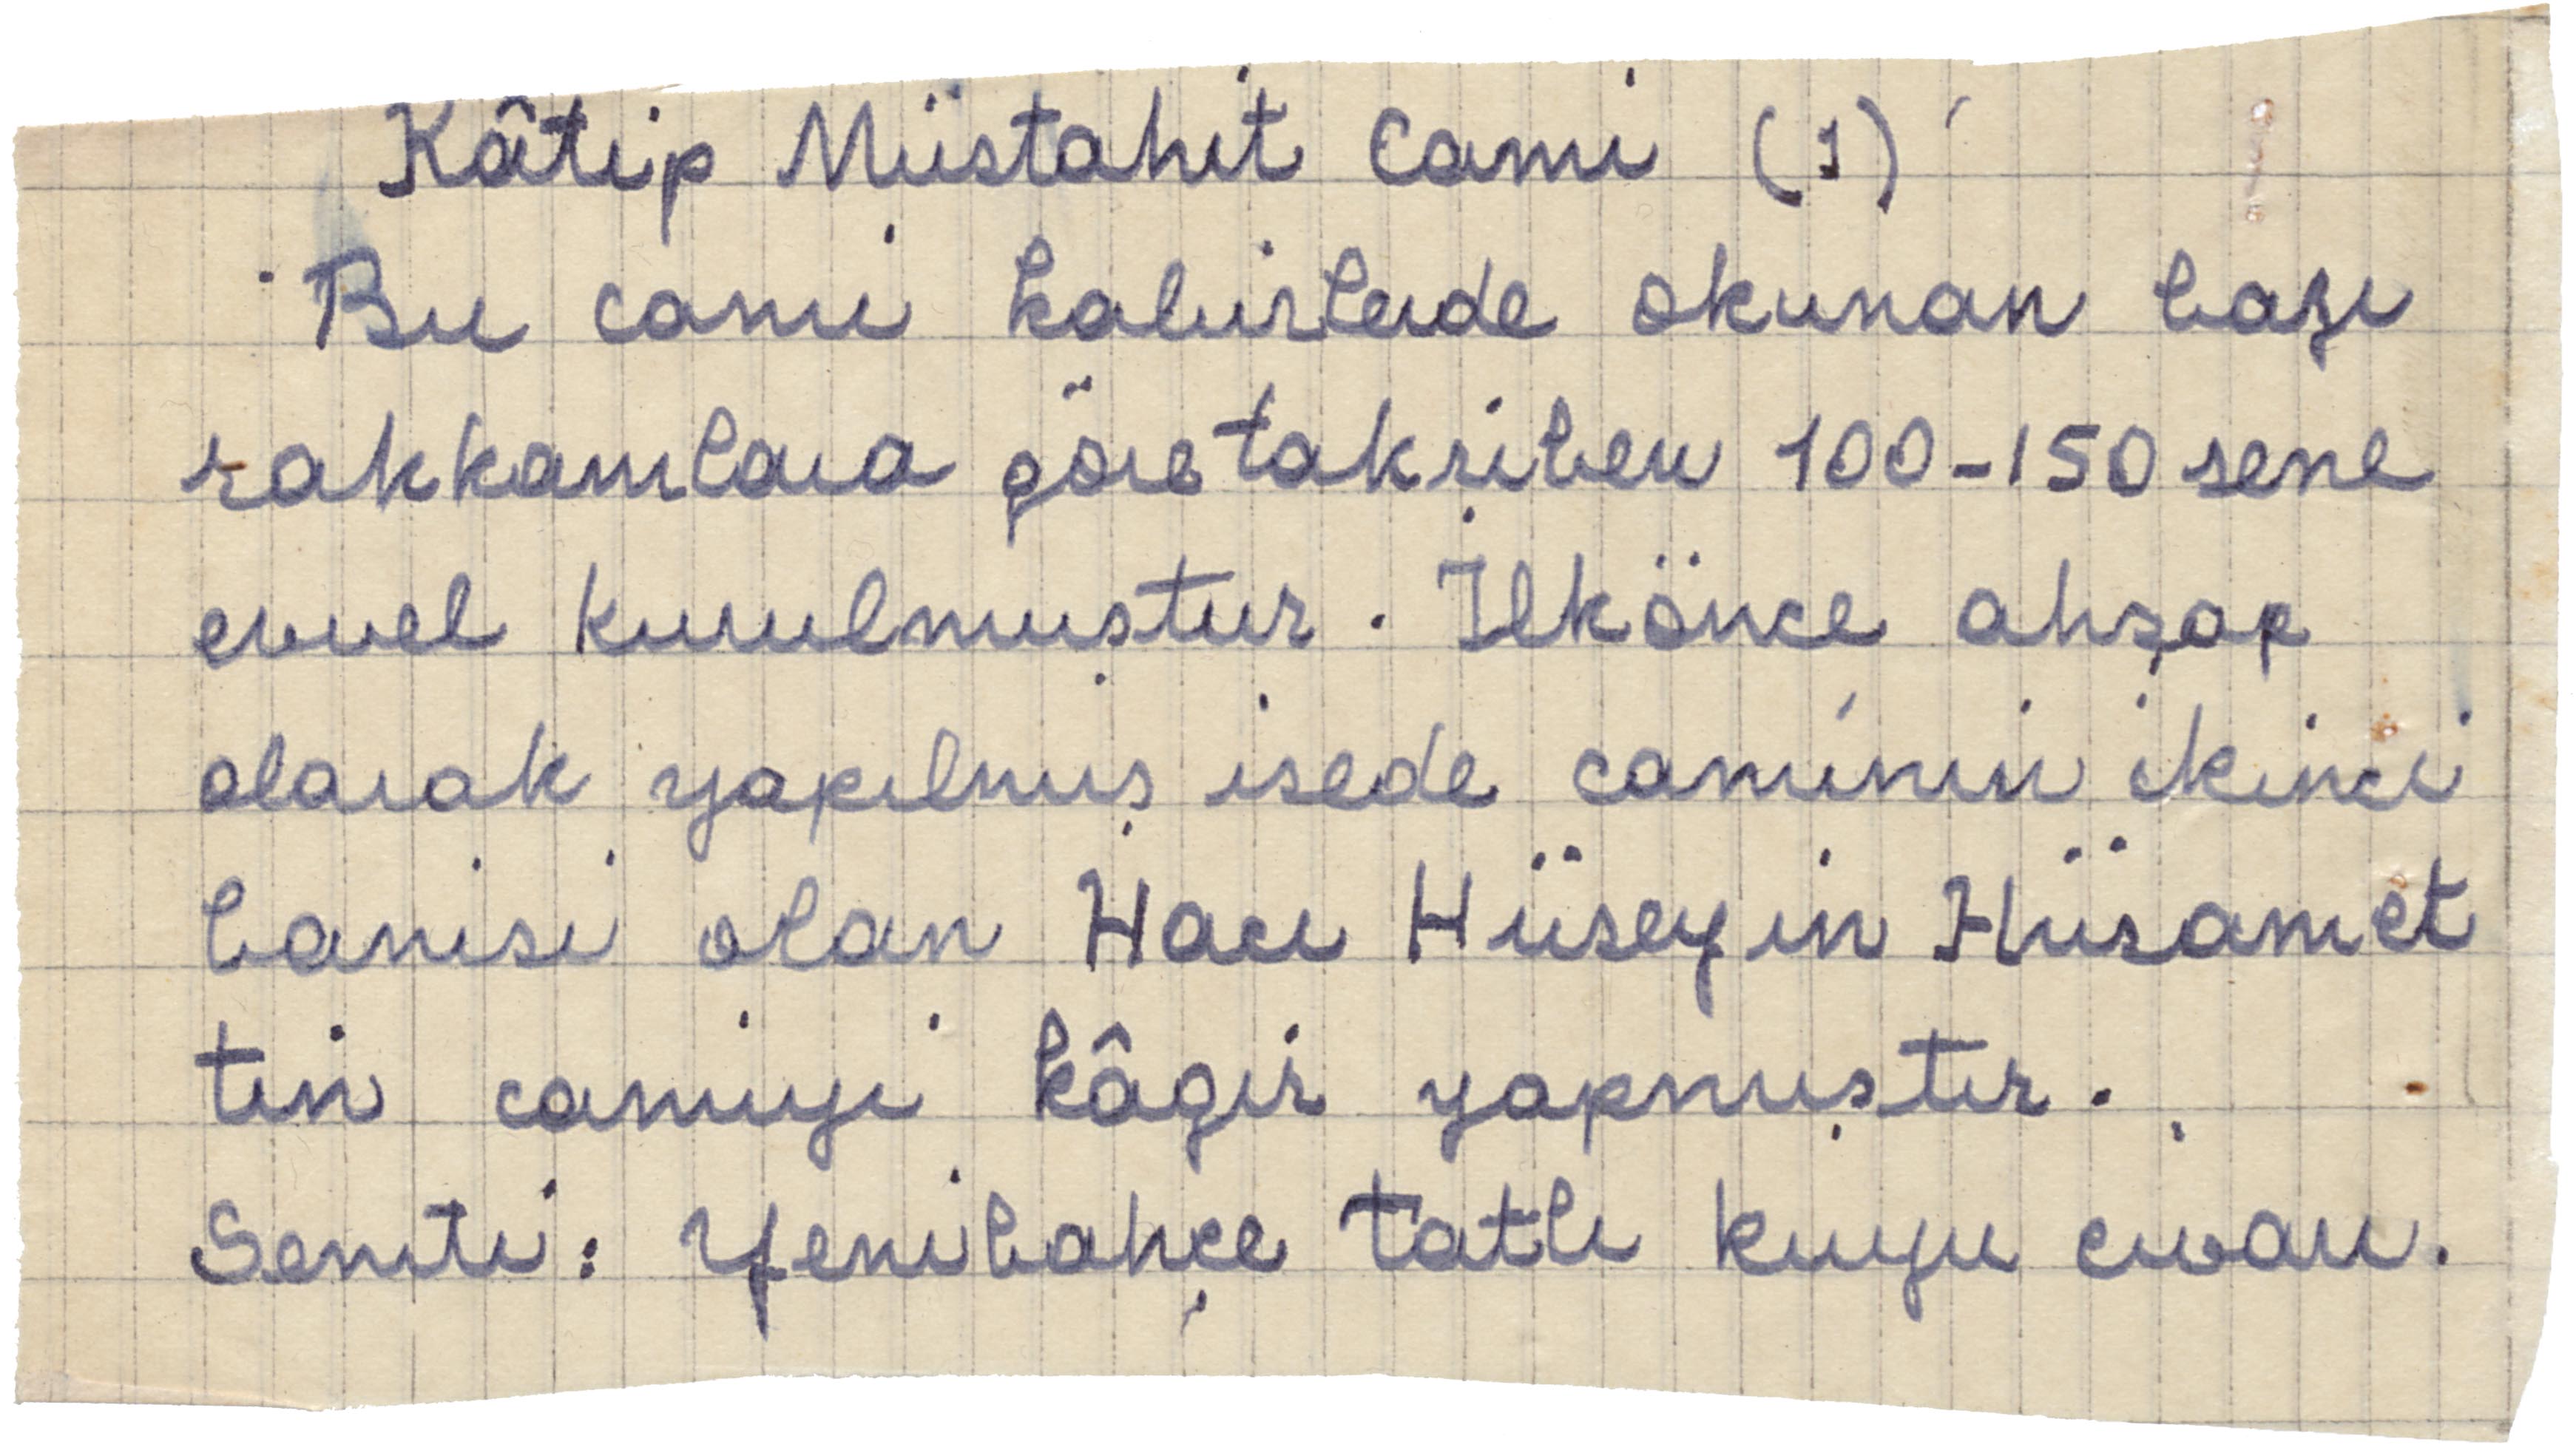 Kâtip Müstahit Cami (1)
Bu cami kabirlerde okunan bazı
rakkamlara göre takriben 100-150 sene
evvel kurulmuştur. İlkönce ahşap
olarak yapılmış isede camínin ikinci
banisi olan Hacı Hüseyin Hüsamet
tin camiyi kâgir yapmıştır.
Semti: Yenibahçe Tatlı kuyu civarı.